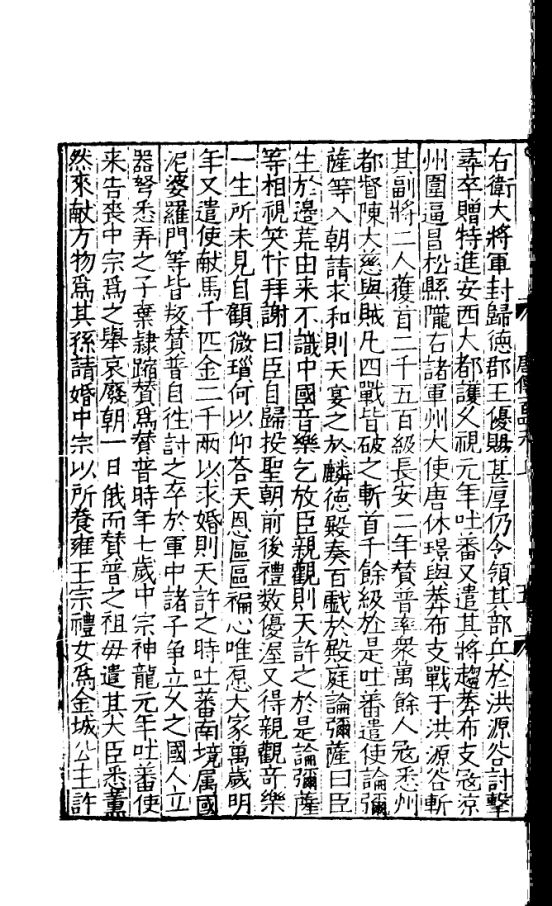 右衛大將軍封歸德郡王優賜甚厚仍令領其部丘於洪源谷討擊
尋卒贈特進安西大都護久視元年吐蕃又遣其將趨莽布支寇涼
州圍逼昌松縣隴右諸軍州大使唐休璟與莽布支戰于洪源谷斬
其副將二人獲首二千五百級長安二年賛普率衆萬餘人寇悉州
都督陳大慈與賊凡四戰皆破之斬首千餘級於是吐蕃遣使論彌
薩等入朝請求和則天宴之於麟德殿奏百戲於殿庭論彌薩曰臣
生於邊荒由來不識中國音樂乞放臣親觀則天許之於是論彌薩
等相視笑忭拜謝曰臣自歸投聖朝前後禮数優渥又得親觀竒樂
一生所未見自顧微瑣何以仰荅天恩區區褊心唯愿大家萬歲明
年又遣使献馬千匹金二千兩以求婚則天許之時吐蕃南境属國
泥婆羅門等皆叛賛普自徃討之卒於軍中諸子争立久之國人立
器弩悉弄之子棄隷蹜賛爲賛普時年七歲中宗神龍元年吐蕃使
来告喪中宗爲之舉哀廢朝一日俄而賛普之祖毋遣其大臣悉薫
然來献方物爲其孫請婚中宗以所養雍王宗禮女爲金城公主許